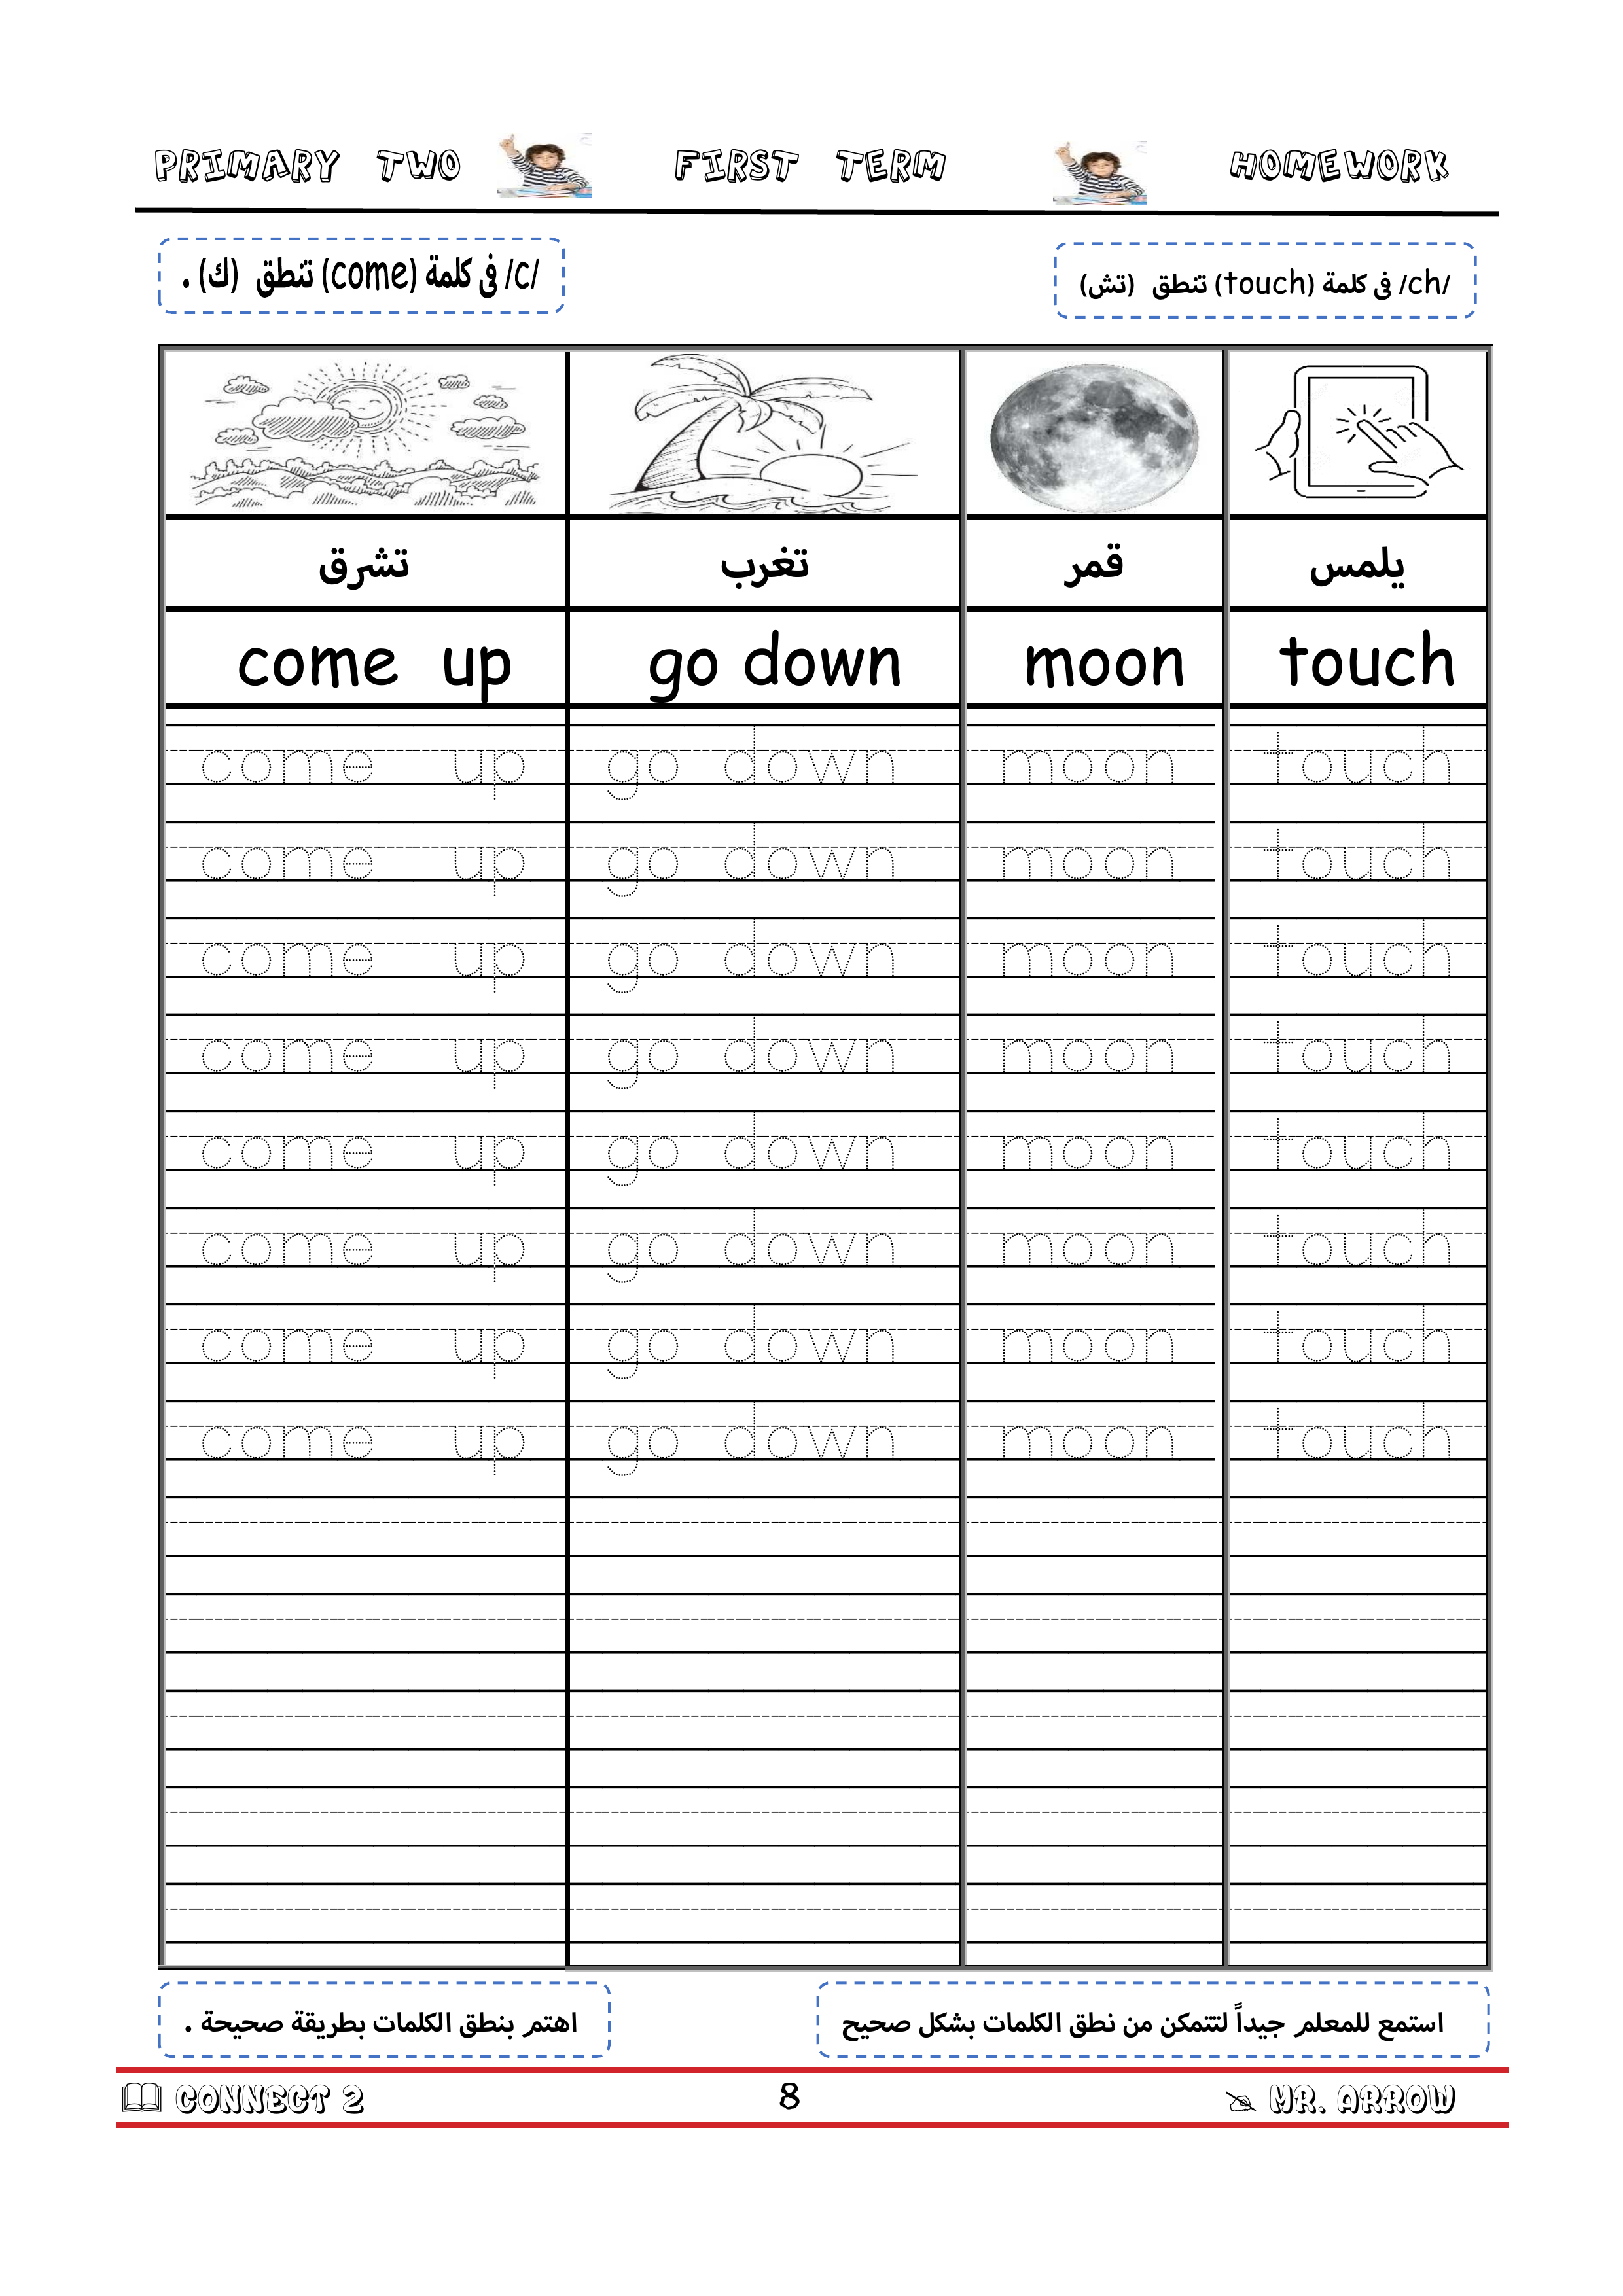 PRIMARY TWO FIRST TERM HOMEWORK
/c/ فى كلمة (come) تنطق (ك) .
/ch/ فى كلمة (touch) تنطق (تش)
تشرق تغرب قمر يلمس
come up go down moon touch
come up go down moon touch
come up go down moon touch
come up go down moon touch
come up go down moon touch
come up go down moon touch
come up go down moon touch
come up go down moon touch
come up go down moon touch
اهتم بنطق الكلمات بطريقة صحيحة .
استمع للمعلم جيداً لتتمكن من نطق الكلمات بشكل صحيح
CONNECT 2 8 MR. ARROW